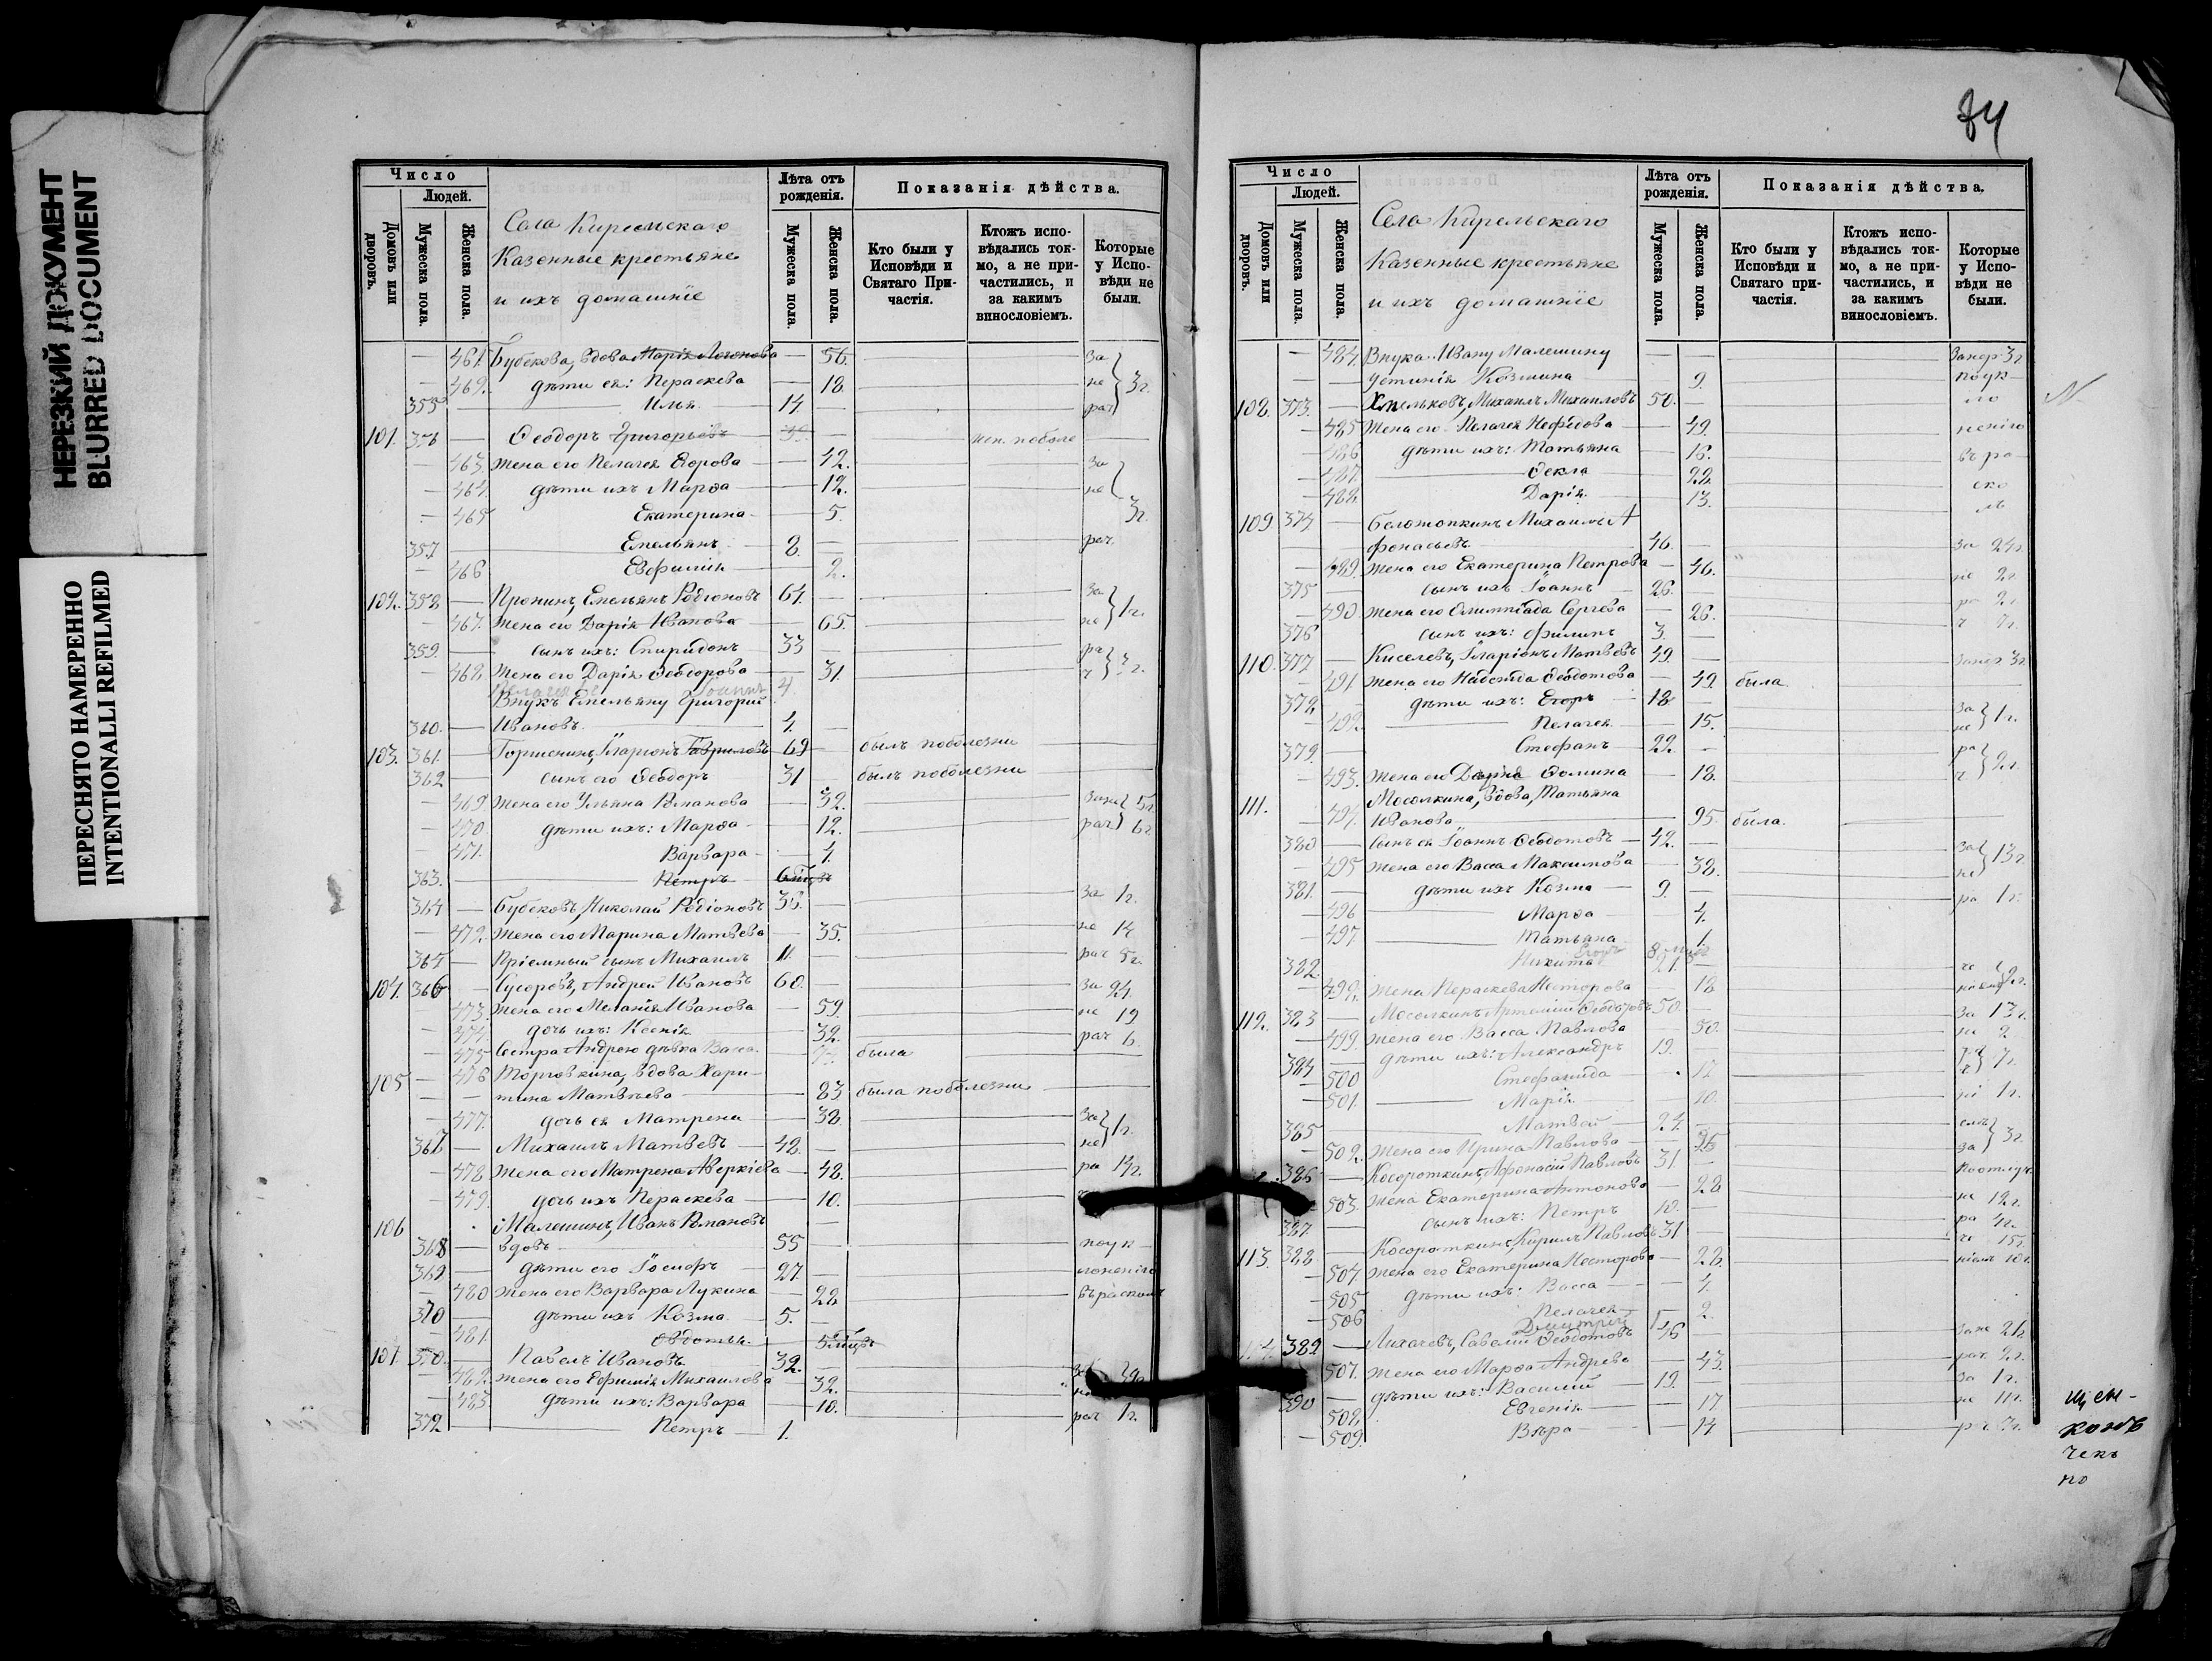 НЕРЕЗКИЙ ДОКУМЕНТ
BLURRED DOCUMENT
ПЕРЕСНЯТО НАМЕРЕННО
INTENTIONALLI REFILMED
Число
Людей.
Домовъ или дворовъ.
Мужеска пола.
Женска пола.
Села Кирельскаго
Казенные крестьяне
и ихъ домашніе
Лѣта отъ рожденія.
Мужеска пола.
Женска пола.
Показанія дѣйства.
Кто были у Исповѣди и Святаго Причастія.
Ктожъ исповѣдались токмо, а не причастились, и за какимъ винословіемъ.
Которые у Исповѣди не были.
461. Бубекова, вдова Марія 56. за
462. дѣти ея: Пераскева 18. не 3 г.
355 Илья 14. рач
101. 356 — Ѳеодоръ Григорьевъ
463. Жена его Пелагея Егорова 42. за
464. дѣти ихъ Марѳа 12. не
465 Екатерина 5. 3 г.
357 Емельянъ 8. рач
466 Евфимія 2.
102. 358 — Пронинъ, Емельянъ Родіоновъ 64. за
467. Жена его Дарія Иванова 65. не 1 г.
359. сынъ ихъ: Спиридонъ 33 ра
468. Жена его Дарія Ѳеодорова 31. ч
Іоаннъ 4.
Внукъ Емельяну Григорій
360. Ивановъ 4.
103. 361 Горшенинъ, Иларіонъ Гавриловъ 69 былъ поболезни
362 сынъ его Ѳеодоръ 31 былъ поболезни
469 Жена его Ульяна Романова 32. зане 5 г
470 дѣти ихъ: Марѳа 12. рач 6 г
471. Варвара 4.
363. Петръ
364 — Бубековъ, Николай Родіоновъ 38. за 1 г.
472. Жена его Марина Матвѣева 35. не 14
365 — Пріемный сынъ Михаилъ 11. рач 5 г.
104. 366 — Андрей Ивановъ 60. за 24
473. Жена его Меланія Иванова 59. не 19
474. дочь ихъ: Ксенія 32. рач 6.
475 Сестра Андрею дѣвка Васса была
105 — 476 Торговкина, вдова Хари-
тина Матвѣева 83 была поболезни
477. дочь ея Матрена 38. за
367 — Михаилъ Матвѣевъ 48. не 1 г.
478 Жена его Матрена Аверкіева 48. ра 14 г.
479. дочь ихъ Пераскева 10.
106 Малешинъ, Иванъ Романовъ
368 — вдовъ 55 поук
369 — дѣти его Іосифъ 27. лоненію
480 Жена его Варвара Лукина 28 въ расколъ
370 дѣти ихъ Козма 5.
481. Евдотья
107 370. Павелъ Ивановъ 32.
482. Жена его Ефимія Михаилова 32.
483 дѣти ихъ: Варвара 10.
372 Петръ 1. рач 1 г.
84
Число
Людей.
Домовъ или дворовъ.
Мужеска пола.
Женска пола.
Села Кирельскаго
Казенные крестьяне
и ихъ домашніе
Лѣта отъ рожденія.
Мужеска пола.
Женска пола.
Показанія дѣйства.
Кто были у Исповѣди и Святаго причастія.
Ктожъ исповѣдались токмо, а не причастились, и за какимъ винословіемъ.
Которые у Исповѣди не были.
484. Внука Ивану Малешину
Устинія Козмина 9. поук
108. 373. — Хмельковъ, Михаилъ Михаиловъ 50. ло
485 Жена его Пелагея Нефедова 49. ненію
486 дѣти ихъ: Татьяна 16. въ ра
487. Ѳекла 22. ско
488. Дарія 13. лъ
109. 374. — Болотонкинъ Михаилъ А
фонасьевъ 46. за 24 г.
489. Жена его Екатерина Петрова 46. не 2 г.
375 — сынъ ихъ Іоаннъ 26. ра 2 г.
490 Жена его Олимпіада Сергѣева 26. ч
376 сынъ ихъ: Филипъ 3.
110. 377 — Киселевъ, Иларіонъ Матвѣевъ 49.
491. Жена его Надежда Ѳедотова 49. была.
378 дѣти ихъ: Егоръ 18 за
492. Пелагея 15. не 1 г.
379. Стефанъ 22. ра
493. Жена его Дарія Ѳомина 18. ч 2 г.
111. Мосолкина, вдова, Татьяна
494. Иванова 95. была.
380 — Сынъ ея Іоаннъ Ѳедотовъ 42. за
495 Жена его Васса Максимова 38. не 13 г.
381. дѣти ихъ Козма 9. ра 1 г.
496 Марѳа 4.
497 Татьяна 1.
Егоръ
382. Никита 21.
498. Жена Пераскева Несторова 18
112. 383 — Мосолкинъ Артемій Ѳеодоровъ 50. за 13 г.
499. Жена его Васса Павлова 50. не 2
384 — дѣти ихъ: Александръ 19.
500 Стефанида 12
501. Марія 10. 1 г.
385 Матвей 24.
502. Жена его Ирина Павлова 3 г.
386 Косороткинъ, Афонасій Павловъ 31 поотлуч
503. Жена Екатерина Антонова 28. не 12 г.
387. сынъ ихъ: Петръ 10. ра 4 г.
113. 388 — Косороткинъ, Кирилъ Павловъ 31
504. Жена его Екатерина Несторова 28.
505 дѣти ихъ: Васса 4.
506 Пелагея 2.
Дмитрій
389 — Лихачевъ, Савелій Ѳедотовъ 46 зане 21 г.
507. Жена его Марѳа Андреева 43. рач 2 г.
390 дѣти ихъ: Василій 19. за 1 г.
508. Евгенія 17 не 11 г.
509. Вѣра 14
щен-
чекъ
но